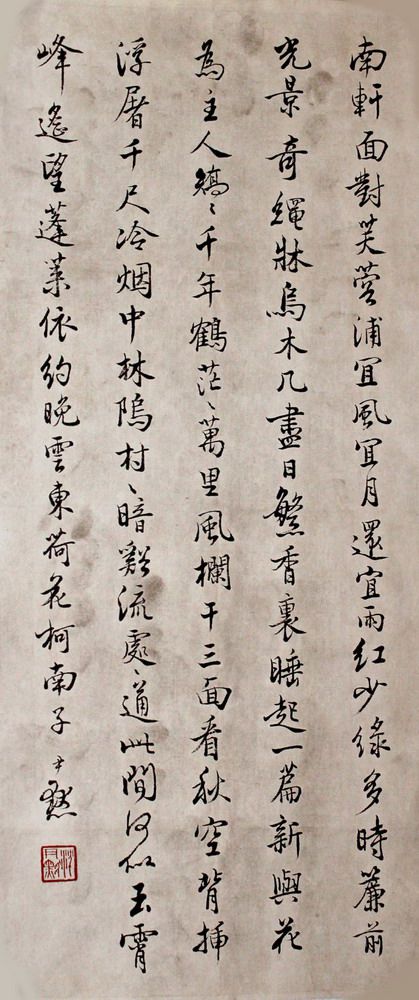 南軒面對芙蓉浦宜風宜月還宜雨紅少綠多時簾前
光景奇繩牀烏木几盡日繁香裏睡起一篇新與花
為主人矯〻千年鶴茫〻萬里風欄干三面看秋空背插
浮屠千尺冷烟中林塢村〻暗谿流處〻通此間何似玉霄
峰遙望蓬萊依約晚雲東荷花柯南子 尹默